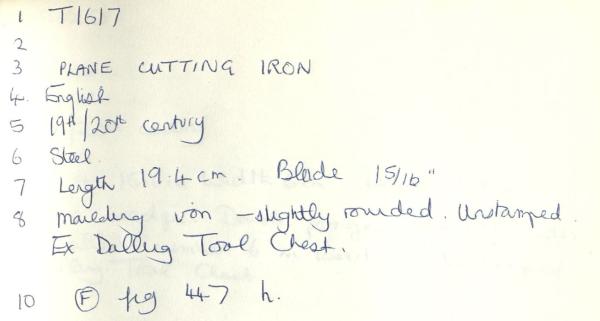 1 T1617
2
3 PLANE CUTTING IRON
4. English
5 19th/20th century
6 Steel.
7 Length 19.4cm. Blade 15/16"
8 moulding iron - slightly rounded. Unstamped.
Ex Dalling Tool Chest.
10 (F) pg 447 h.